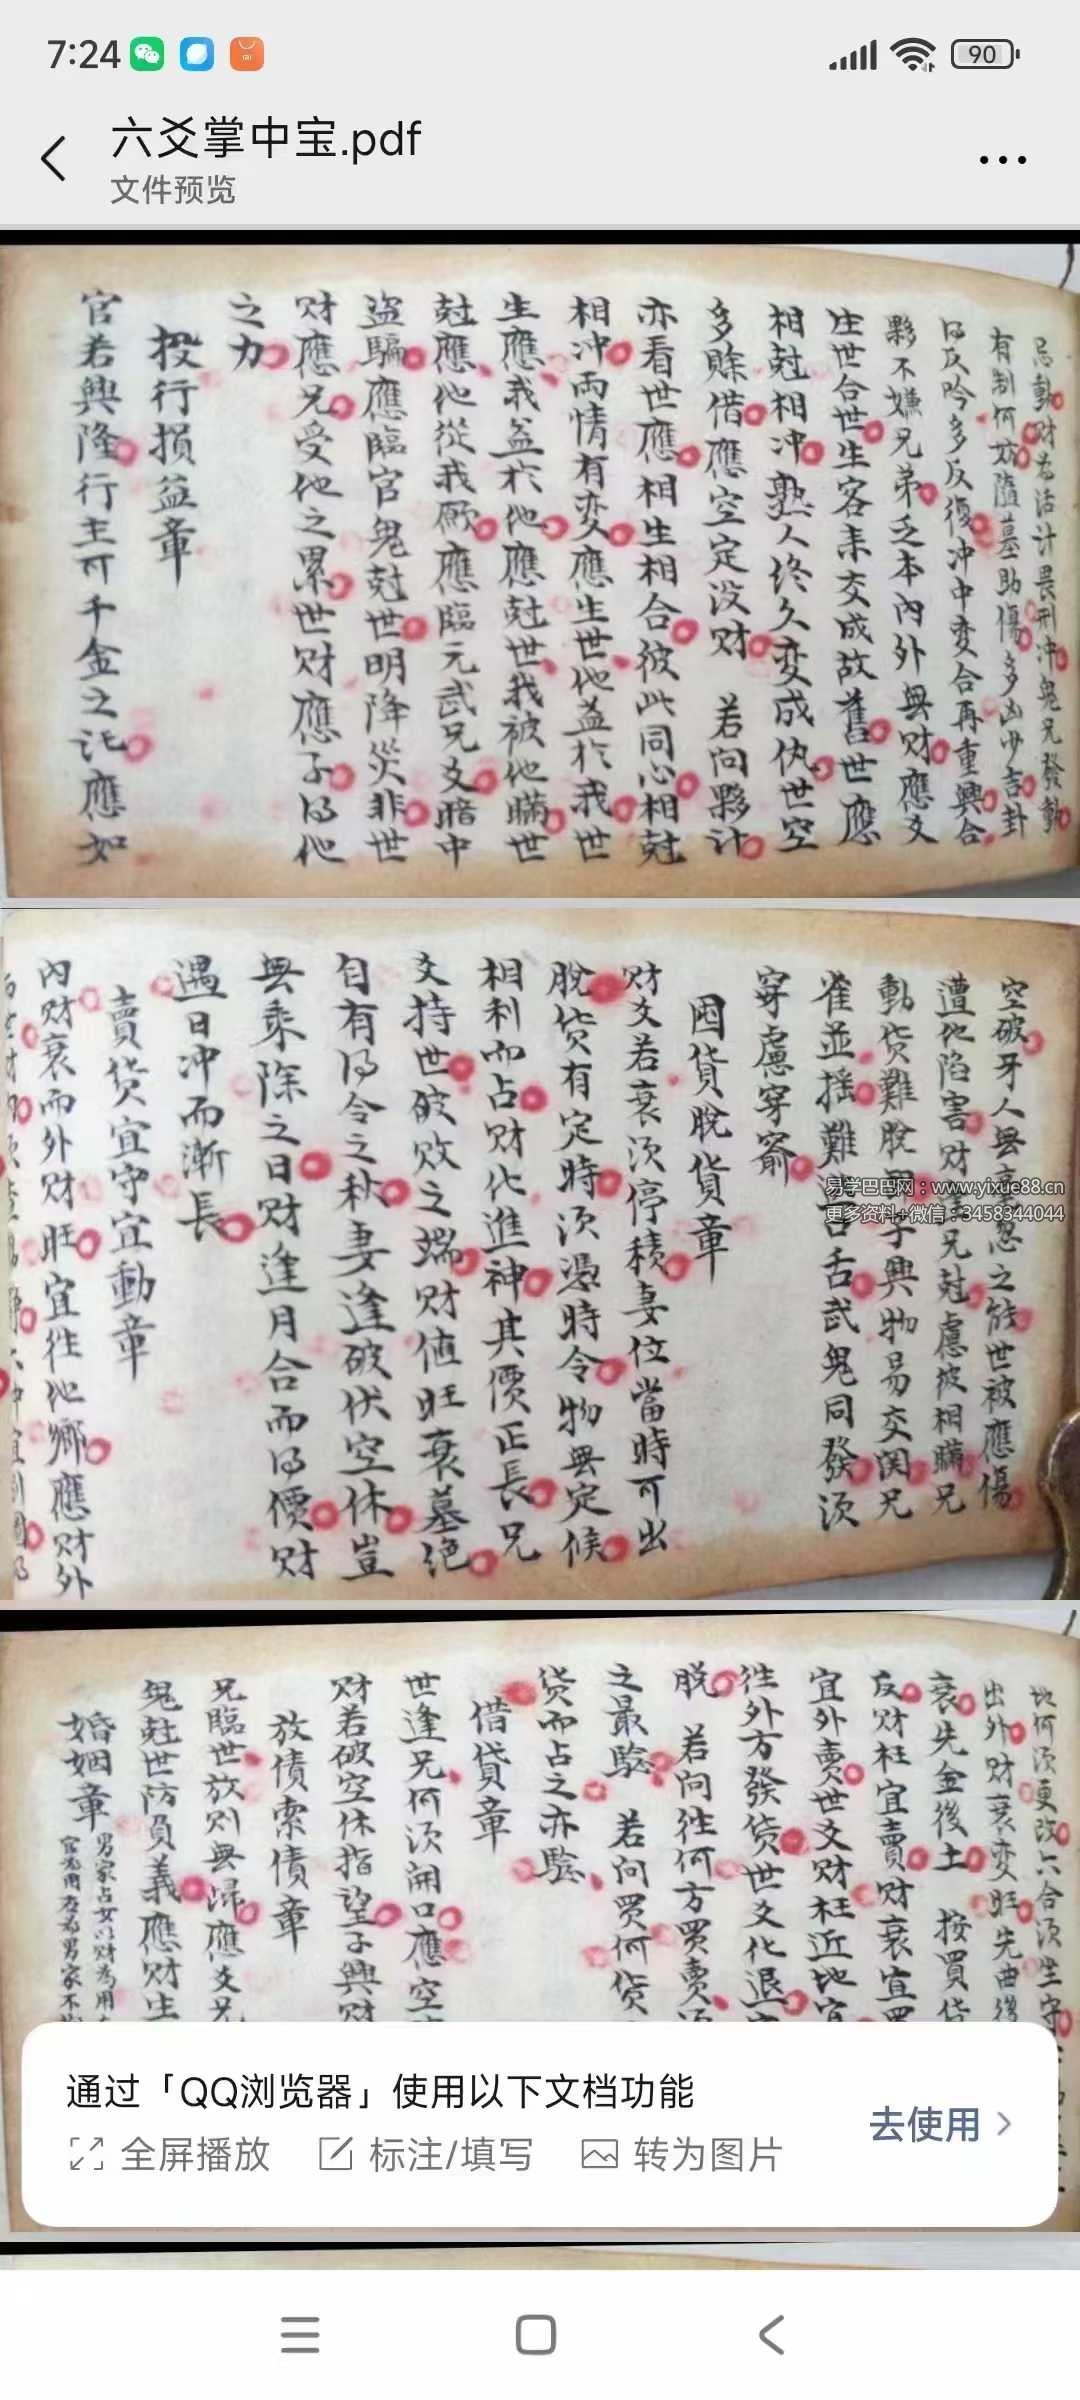 7:24
90
六爻掌中宝.pdf
文件预览
忌動財為活計畏刑冲鬼兄發動
有制何妨隨墓助傷多凶少吉卦
反吟多反復冲中变合再重興合
夥不嫌兄弟乏本內外無財應爻
生世合世生客来交成故舊世應
相尅相冲熟人终久变成仇世空
多賖借應空定没财 若问夥计
亦看世應相生相合彼此同心相尅
相冲兩情有変應生世他益扵我世
生應我益扵他應尅世我被他瞒世
尅應他從我厥應臨元武兄爻暗中
盜騙應臨官鬼尅世明降災非世
财應兄受他之累世财應子得他
之力
投行損益章
官若興隆行主可千金之託應如
空破牙人無 之能世被應傷
遭他陷害财 兄尅慮被相瞞兄
動货難脫 子興物易交関兄
雀並摇難 口舌武鬼同發须
穿慮穿窬
囤貨脫貨章
财爻若衰须停積妻位當時可出
脫货有定時须憑時令物無定候
相利而占财化進神其價正長兄
爻持世破败之端财值旺衰墓绝
自有得令之秋妻逢破伏空休豈
無乘除之日财逢月合而得價财
遇日冲而渐長
賣货宜守宜動章
內财衰而外财旺宜往他鄉應财外
易学巴巴网：www.yixue88.cn
更多资料+微信：3458344044
地何须更改六合须坐守
出外财衰变旺先曲後
衰先金後土 按買货
反财旺宜賣财衰宜買
宜外賣世爻财旺近地宜
往外方發货世爻化退
脫 若问往何方買賣须
之最驗 若问買何货
货而占之亦驗
借貸章
世逢兄何须開口應空
财若破空休指望子興财
放債索債章
兄臨世放则無歸應爻兄
鬼尅世防負義應财生
婚姻章
男家占女以财為用
通过「QQ浏览器」使用以下文档功能
去使用
全屏播放 标注/填写 转为图片